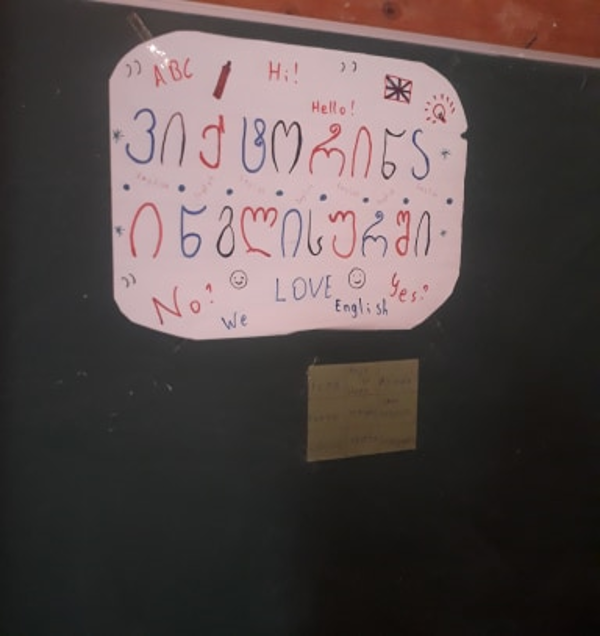 ABC Hi!
Hello!
ვიქტორინა
ინგლისურში
No? We LOVE English Yes?